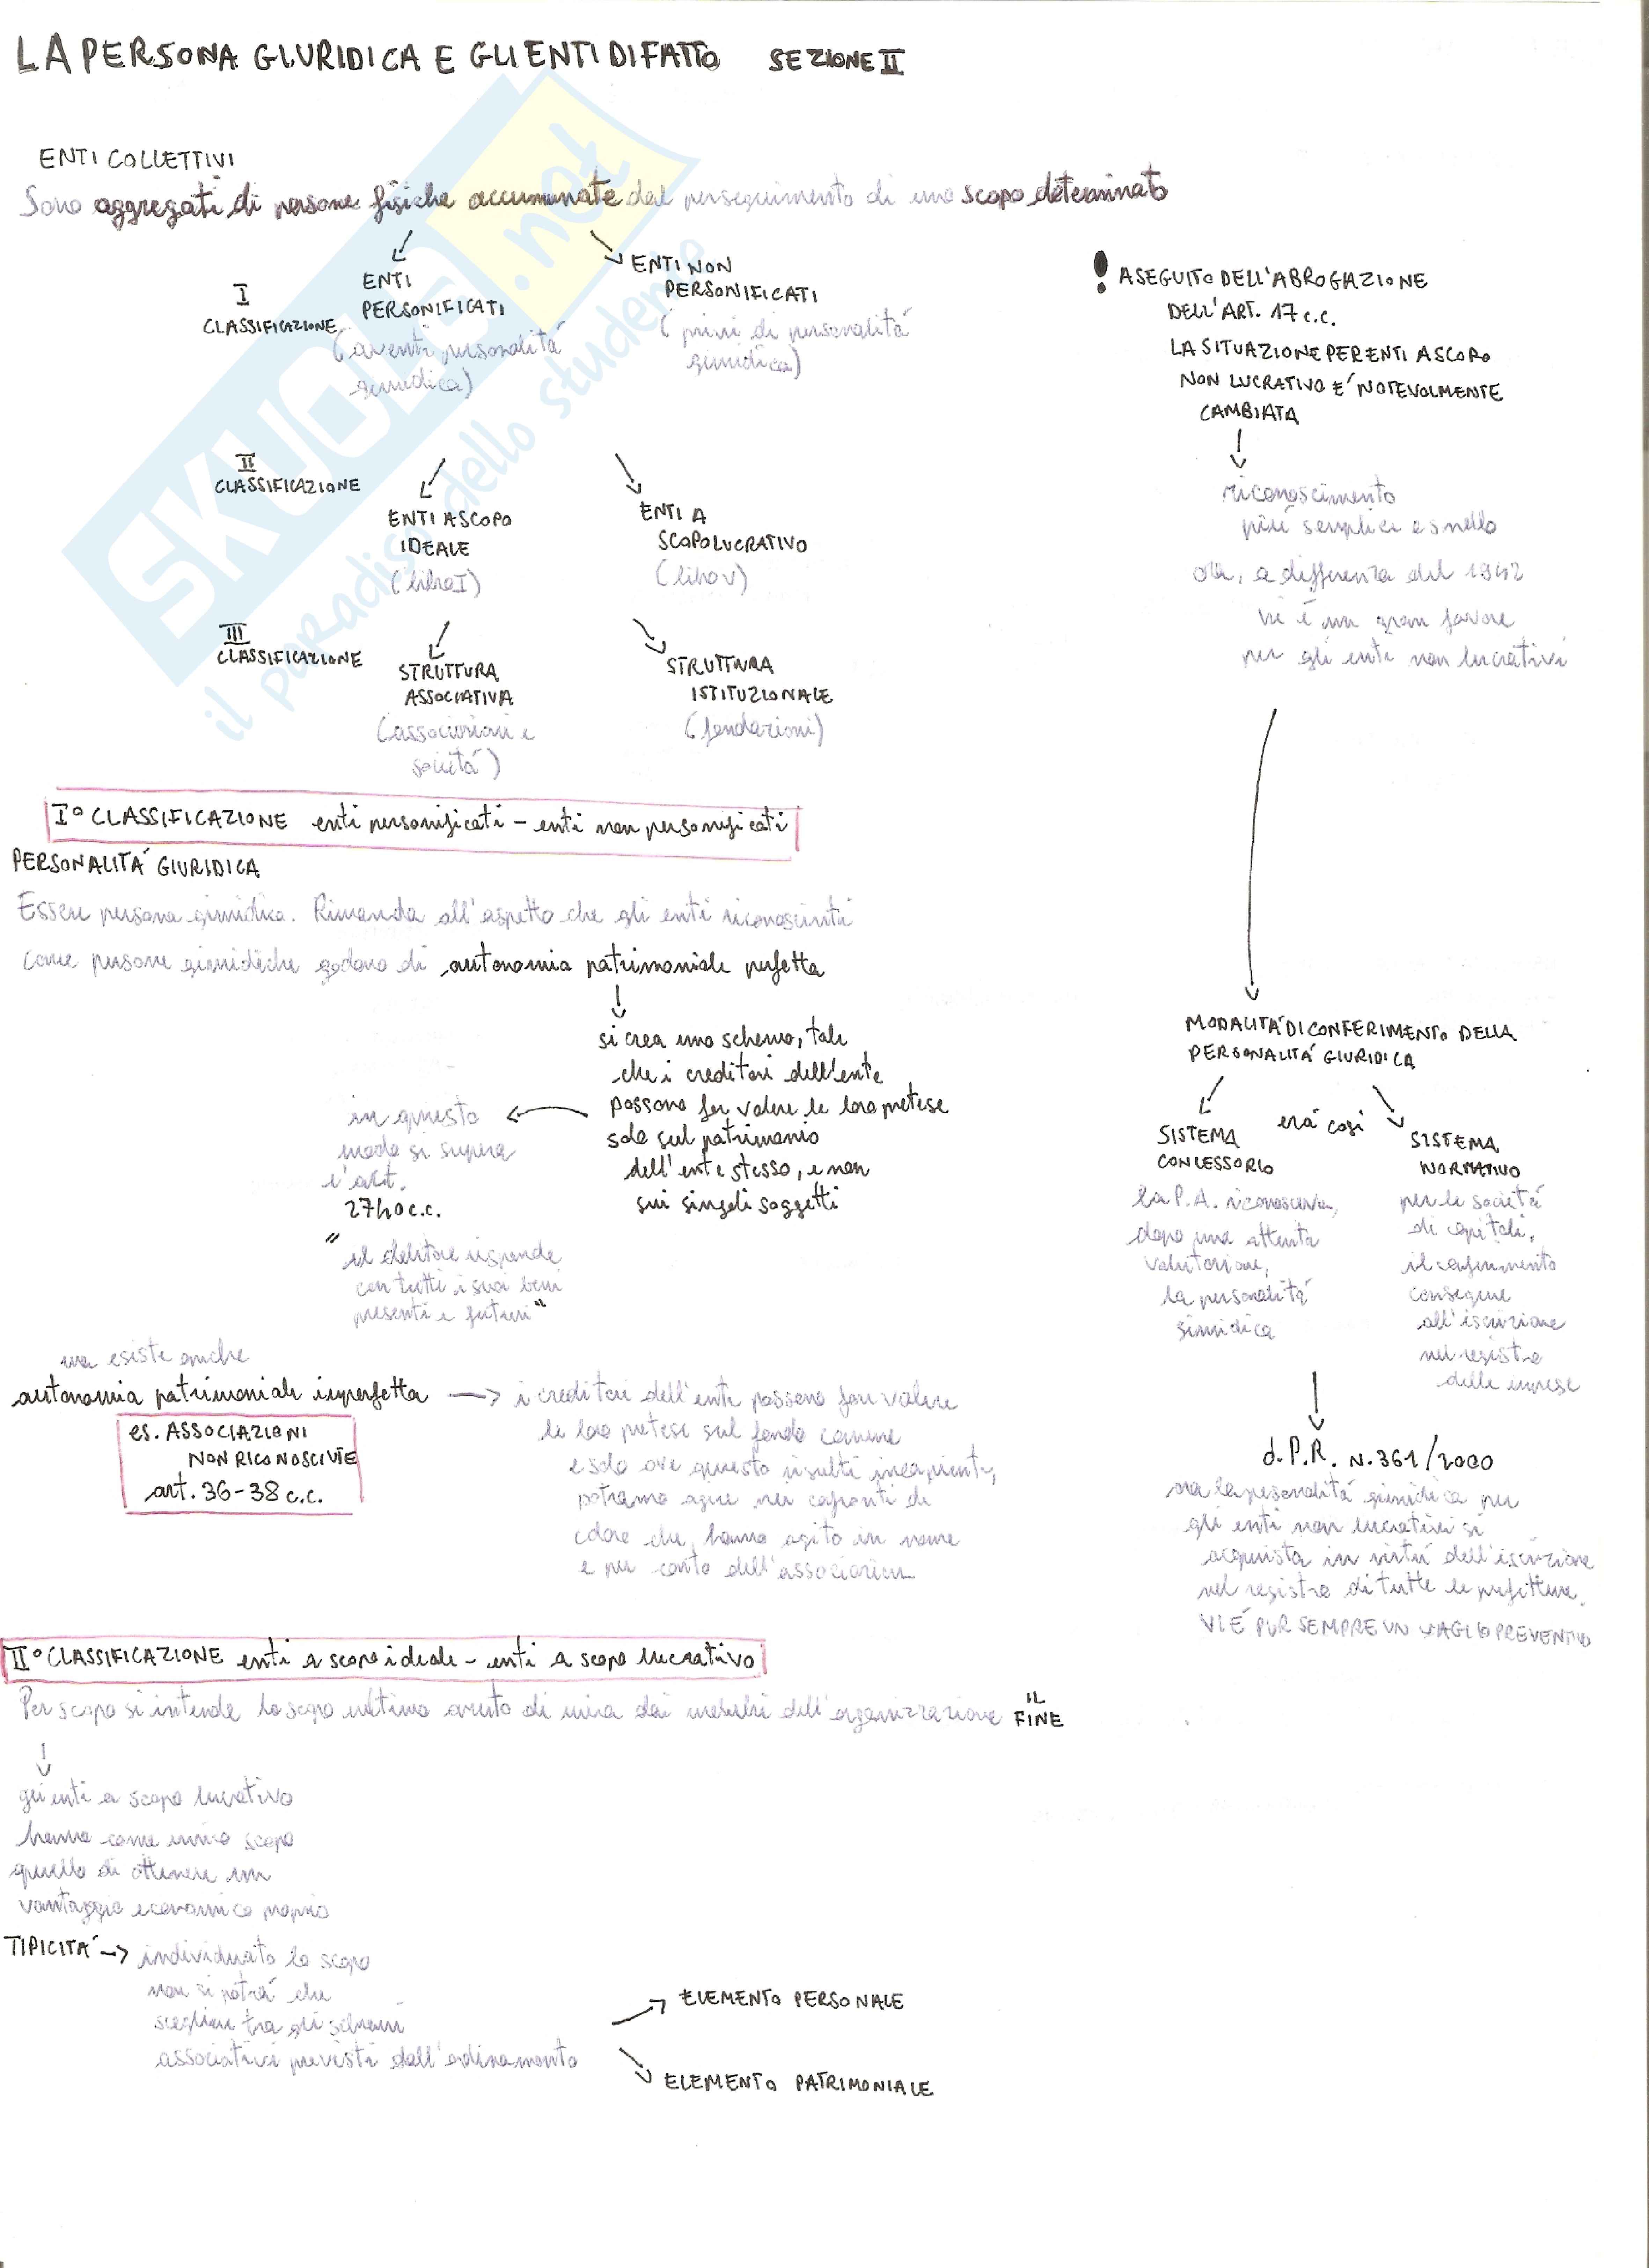 LA PERSONA GIURIDICA E GLI ENTI DI FATTO SEZIONE II
ENTI COLLETTIVI
Sono aggregati di persone fisiche accumunate dal perseguimento di uno scopo determinato
I
CLASSIFICAZIONE
ENTI
PERSONIFICATI
(aventi personalitá
giuridica)
ENTI NON
PERSONIFICATI
(privi di personalitá
giuridica)
II
CLASSIFICAZIONE
ENTI A SCOPO
IDEALE
(libro I)
ENTI A
SCOPO LUCRATIVO
(libro V)
III
CLASSIFICAZIONE
STRUTTURA
ASSOCIATIVA
(associazioni e
societá)
STRUTTURA
ISTITUZIONALE
(fondazioni)
! A SEGUITO DELL'ABROGAZIONE
DELL'ART. 17 c.c.
LA SITUAZIONE PER ENTI A SCOPO
NON LUCRATIVO E' NOTEVOLMENTE
CAMBIATA
riconoscimento
piú semplice e snello
ora, a differenza del 1942
vi é un gran favore
per gli enti non lucrativi
I° CLASSIFICAZIONE enti personificati - enti non personificati
PERSONALITÁ GIURIDICA
Essere persona giuridica. Rimanda all'aspetto che gli enti riconosciuti
come persone giuridiche godono di autonomia patrimoniale perfetta
si crea uno schermo, tale
che i creditori dell'ente
possono far valere le loro pretese
solo sul patrimonio
dell'ente stesso, e non
sui singoli soggetti
in questo
modo si supera
l'art.
2740 c.c.
"il debitore risponde
con tutti i suoi beni
presenti e futuri"
MODALITÁ DI CONFERIMENTO DELLA
PERSONALITÁ GIURIDICA
era cosi
SISTEMA
CONCESSORIO
la P.A. riconosceva,
dopo una attenta
valutazione,
la personalitá
giuridica
SISTEMA
NORMATIVO
per le societá
di capitali,
il conferimento
consegue
all'iscrizione
nel registro
delle imprese
ma esiste anche
autonomia patrimoniale imperfetta
es. ASSOCIAZIONI
NON RICONOSCIUTE
art. 36-38 c.c.
i creditori dell'ente possono far valere
le loro pretese sul fondo comune
e solo ove questo risulti incapiente,
potranno agire nei confronti di
coloro che hanno agito in nome
e per conto dell'associazione
d.P.R. N. 361/2000
ora la personalitá giuridica per
gli enti non lucrativi si
acquista in virtú dell'iscrizione
nel registro di tutte le prefetture.
VI É PUR SEMPRE UN VAGLIO PREVENTIVO
II° CLASSIFICAZIONE enti a scopo ideale - enti a scopo lucrativo
Per scopo si intende lo scopo ultimo avuto di mira dai membri dell'organizzazione IL FINE
gli enti a scopo lucrativo
hanno come unico scopo
quello di ottenere un
vantaggio economico proprio
TIPICITÁ -> individuato lo scopo
non si potrá che
scegliere tra gli schemi
associativi previsti dall'ordinamento
ELEMENTO PERSONALE
ELEMENTO PATRIMONIALE
SKUOLA.net
il paradiso dello studente